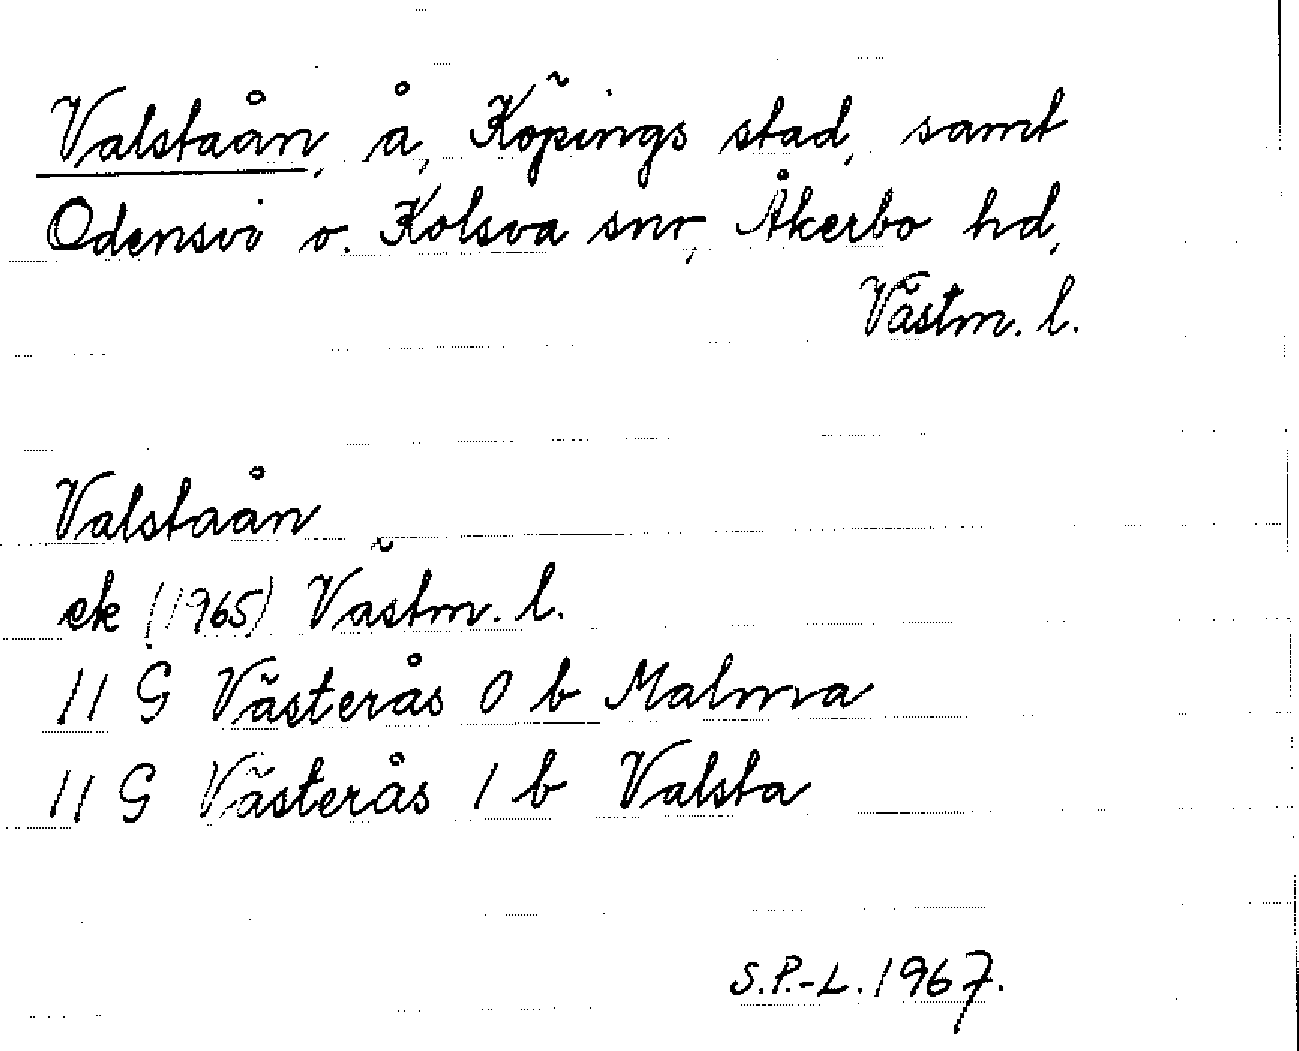 Valstaån, å, Köpings stad, samt
Odensvi o. Kolsva snr, Åkerbo hd,
Västm. l.
Valstaån
ek (1965) Västm. l.
11 G Västerås 0 b Malma
11 G Västerås 1 b Valsta
S.P.-L. 1967.